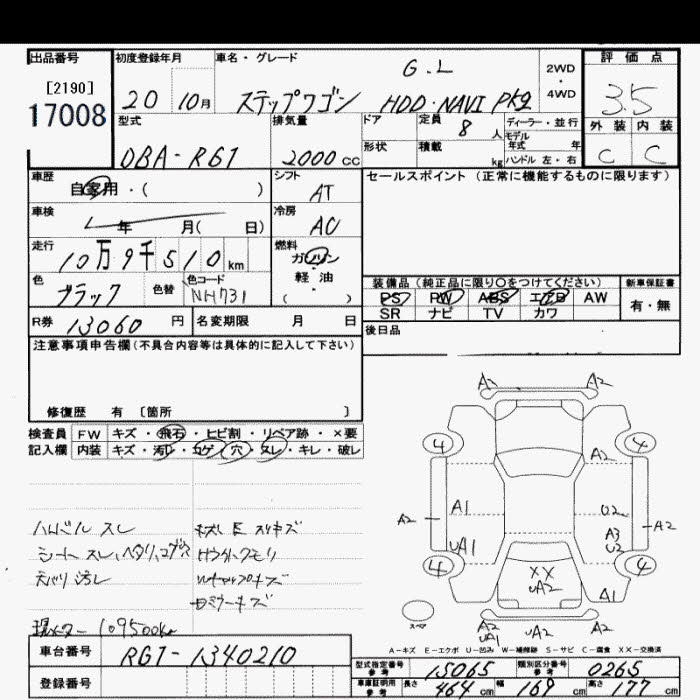 出品番号 初度登録年月 車名・グレード 評価点
[2190]
17008
20 10月
G.L
ステップワゴン HDD・NAVI PKG
2WD ・ 4WD
3.5
型式 排気量 ドア 定員 8 人 ディーラー・並行 外装 内装
DBA-RG1 2000cc 形状 積載 kg モデル年式 年 ハンドル 左・右 C C
車歴 シフト セールスポイント(正常に機能するものに限ります)
自家用・( ) AT
車検 年 月( 日) 冷房 AC
走行 燃料
10万9千510km ガソリン・軽油 ( )
色 ブラック 色替 色コード NH731
装備品(純正品に限り○をつけてください) 新車保証書
PS PW ABS エアB AW 有・無
SR ナビ TV カワ
R券 13060円 名変期限 月 日 後日品
注意事項申告欄(不具合内容等は具体的に記入して下さい)
修復歴 有 〔箇所 〕
検査員 FW キズ・飛石・ヒビ割・リペア跡・×要
記入欄 内装 キズ・汚レ・コゲ・穴・スレ・キレ・破レ
ハンドル スレ
シート スレ、ヘタリ、コゲ穴
天バリ 汚レ
現メーター 109500km
A2 A2
4 4
A2
A1 U2
A2 A3 A2
UA1 U2
4 4
XX
UA2
A1
スペア
A2 UA1 UA2 A2
A-キズ E-エクボ U-凹み W-補修跡 S-サビ C-腐食 XX-交換済
車台番号 RG1-1340210
型式指定番号 参考 15065 類別区分番号 参考 0265
登録番号
車庫証明用 参考 長さ 464cm 幅 169cm 高さ 177cm